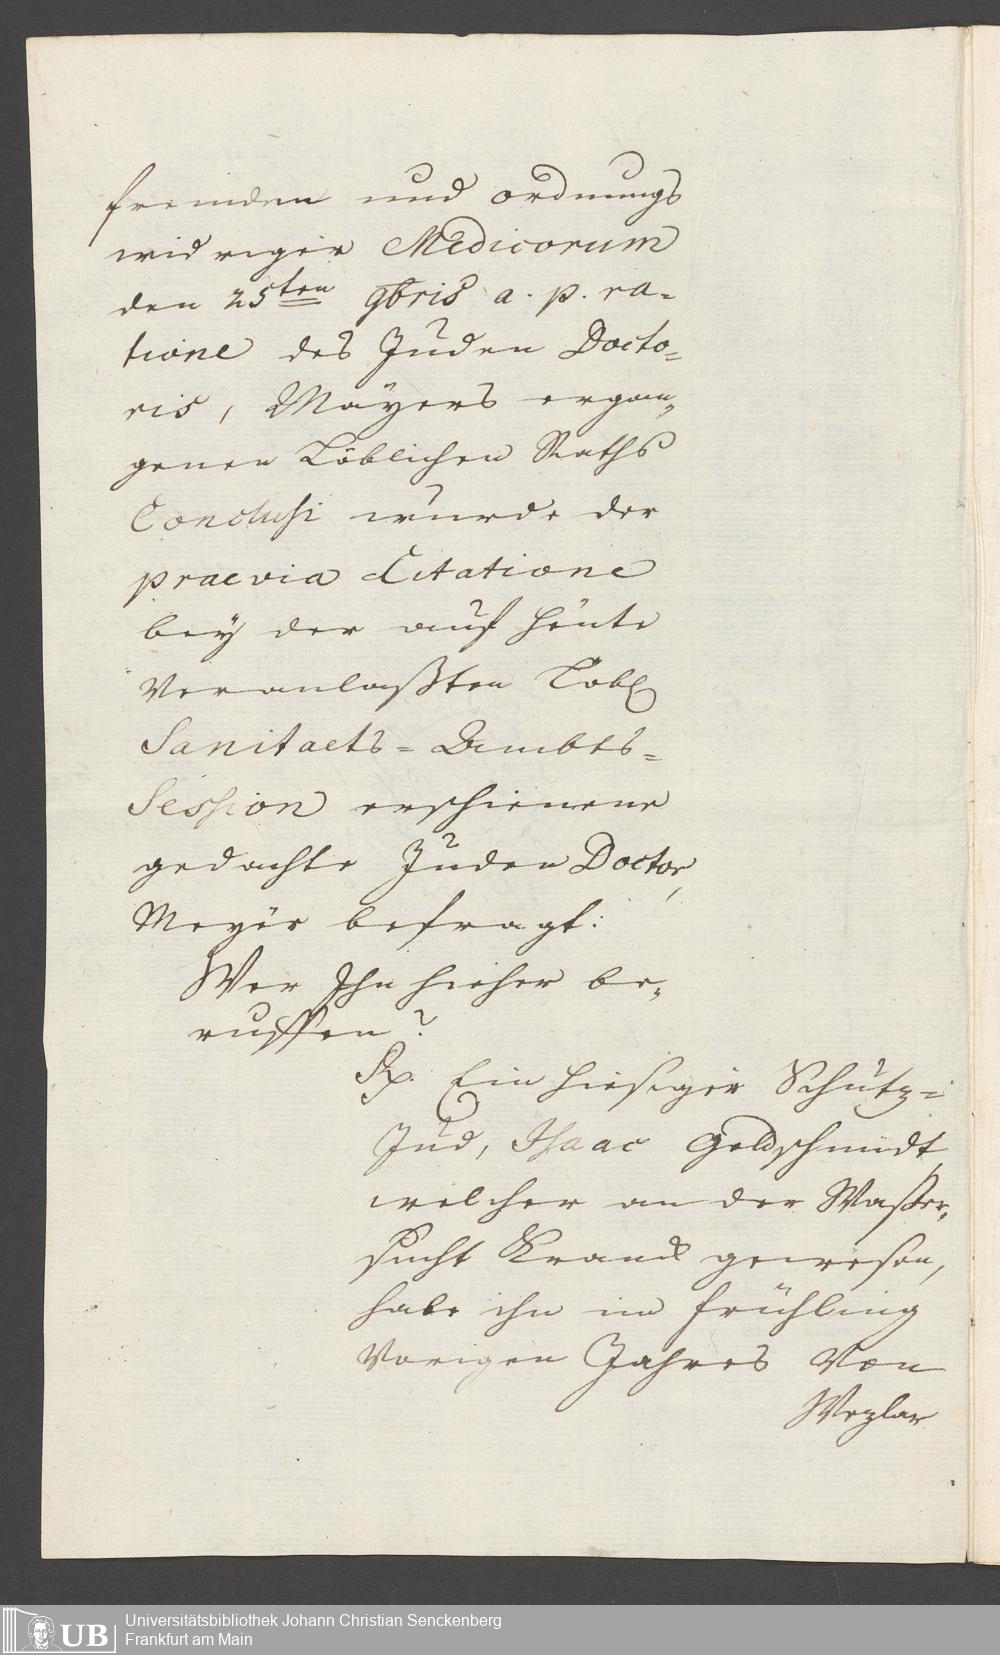 fremden und ordnungs
widriger Medicorum
den 25ten 9bris a. p. ra=
tione des Juden Docto=
ris, Mayers ergan=
genen Löblichen Raths
Conclusi wurde der
praevia Citatione
bey der auf heute
veranlaßten Löbl
Sanitaets=Ambts=
Session erschienene
gedachte Juden Doctor,
Meyer befragt:
Wer Ihn hieher be=
ruffen?
Rp. Ein hiesiger Schutz=
Jud, Isaac Goldschmidt,
welcher an der Waßer=
sucht Kranck gewesen,
habe ihn im frühling
vorigen Jahres von
Wezlar
UB
Universitätsbibliothek Johann Christian Senckenberg
Frankfurt am Main